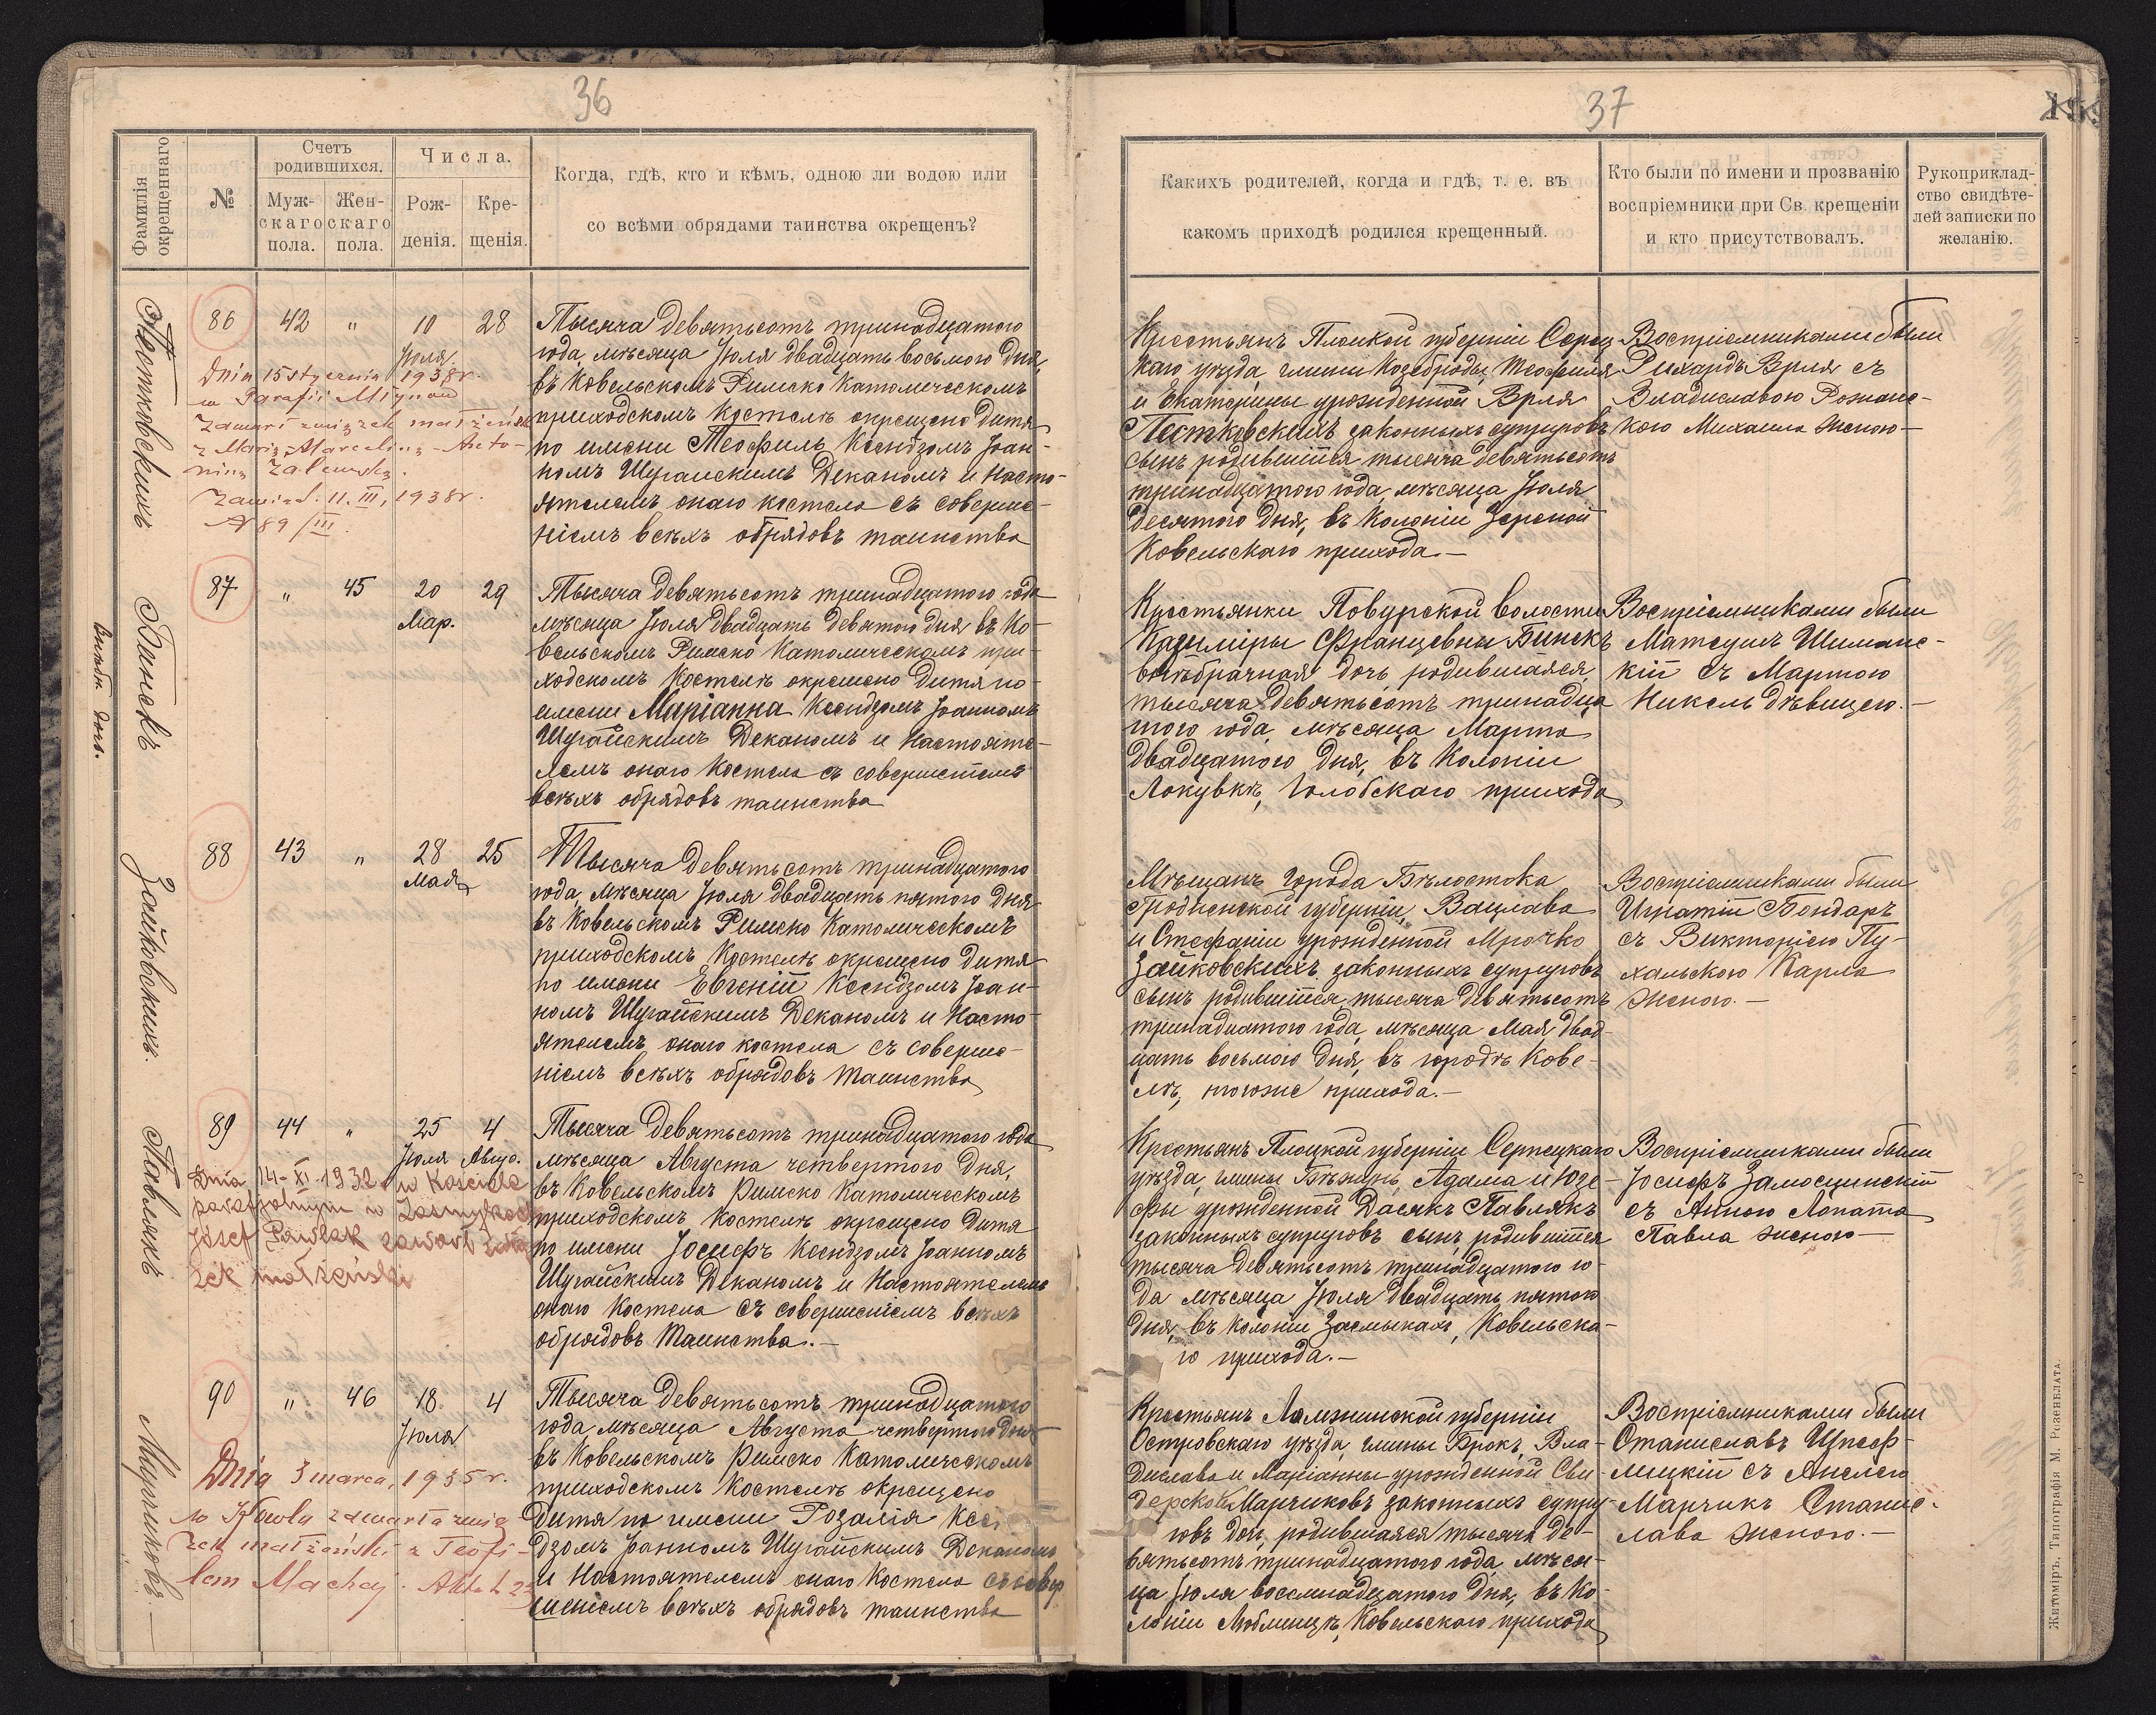 36
Фамилія окрещеннаго
№
Счетъ родившихся.
Муж-скаго пола.
Жен-скаго пола.
Числа.
Рож-денія.
Кре-щенія.
Когда, гдѣ, кто и кѣмъ, одною ли водою или
со всѣми обрядами таинства окрещенъ?
86 42 " 10 28
Іюля
Тысяча девятьсотъ тринадцатого
года, мѣсяца Іюля двадцать восьмого дня,
въ Ковельскомъ Римско Католическомъ
приходскомъ костелѣ окрещено дитя
по имени Теофиль Ксендзомъ Іоан-
номъ Шугайскимъ Деканомъ и Насто-
ятелемъ онаго костела съ соверше-
ніемъ всѣхъ обрядовъ таинства
Dnia 15 stycznia 1938 r.
w Parafii Mizynou
zawarł związek małżeńsk
z Marią-Marceliną-Anto-
niną Zalewską.
Zawiad. 11. III, 1938 r.
N 89/III.
Янекъ
внѣбр. дочь.
87 " 45 20 29
Мар.
Тысяча девятьсотъ тринадцатого года
мѣсяца Іюля двадцать девятого дня въ Ко-
вельскомъ Римско Католическомъ при-
ходскомъ Костелѣ окрещено дитя по
имени Маріанна Ксендзомъ Іоанномъ
Шугайскимъ Деканомъ и Настояте-
лемъ онаго Костела съ совершеніемъ
всѣхъ обрядовъ таинства
Зайковскихъ.
88 43 " 28 25
Мая
Тысяча девятьсотъ тринадцатого
года, мѣсяца Іюля двадцать пятого дня
въ Ковельскомъ Римско Католическомъ
приходскомъ Костелѣ окрещено дитя
по имени Евгеній Ксендзомъ Іоан-
номъ Шугайскимъ Деканомъ и Насто-
ятелемъ онаго костела съ соверше-
ніемъ всѣхъ обрядовъ таинства
Павлякъ
89 44 " 25 4
Іюля Авгус.
Тысяча девятьсотъ тринадцатого года
мѣсяца Августа четвертого дня,
въ Ковельскомъ Римско Католическомъ
приходскомъ Костелѣ окрещено дитя
по имени Іосифъ Ксендзомъ Іоанномъ
Шугайскимъ Деканомъ и Настоятелемъ
онаго Костела съ совершеніемъ всѣхъ
обрядовъ Таинства.—
Dnia 14-XI-1932 w Kosciele
parafjalnym w Zasmykach
Józef Pawlak zawarł zwią
zek małżeński
Марчиковъ.—
90 " 46 18 4
Іюля
Тысяча девятьсотъ тринадцатого
года, мѣсяца Августа четвертого дня
въ Ковельскомъ Римско Католическомъ
приходскомъ Костелѣ окрещено
дитя по имени Розалія Ксе
дзомъ Іоанномъ Шугайскимъ Деканомъ
и Настоятелемъ онаго Костела съ совер
шеніемъ всѣхъ обрядовъ таинства
Dnia 3 marca, 1935 r.
w Kowlu zawarła zwią
zek małżeński z Teofi-
lem Machaj. Akt L 23
37
Какихъ родителей, когда и гдѣ, т. е. въ
какомъ приходѣ родился крещенный.
Кто были по имени и прозванію
воспріемники при Св. крещеніи
и кто присутствовалъ.
Рукоприклад-
ство свидѣте-
лей записки по
желанію.
Крестьянъ Плоцкой губерніи Серпц
каго уѣзда, гмины Козеброды, Теофиля
и Екатерины урожденной Врля
Пестковскихъ законныхъ супруговъ
сынъ родившійся тысяча девятьсотъ
тринадцатого года, мѣсяца Іюля
десятого дня, въ Колоніи Зерской
Ковельскаго прихода.—
Воспріемниками были
Рихардъ Врля съ
Владиславою Рожанс-
кою Михаила женою—
Крестьянки Повурской волости
Казиміры Францевны Бинекъ
внѣбрачная дочь родившаяся,
тысяча девятьсотъ тринадца
того года, мѣсяца Марта
двадцатого дня, въ Колоніи
Локувкѣ, Голобскаго прихода
Воспріемниками были
Матеушъ Шиманс-
кій съ Мартою
Никель дѣвицею.—
Мѣщанъ города Бѣлостока
Гродненской губерніи, Вацлава
и Стефаніи урожденной Мрочко
Зайковскихъ законныхъ супруговъ
сынъ родившійся, тысяча девятьсотъ
тринадцатого года, мѣсяца Мая, двад-
цать восьмого дня, въ городѣ Кове-
лѣ, тогоже прихода.—
Воспріемниками были
Игнатій Бондаръ
съ Викторією Пу-
хальскою Карла
женою.—
Крестьянъ Плоцкой губерніи Серпецкаго
уѣзда, гмины Бѣжунь, Адама и Юзе-
фы урожденной Дасякъ Павлякъ
законныхъ супруговъ сынъ, родившійся
тысяча девятьсотъ тринадцатого го-
да мѣсяца Іюля двадцать пятого
дня, въ колоніи Засмыкахъ, Ковельска-
го прихода.—
Воспріемниками были
Іосифъ Замосцинскій
съ Анною Лопата
Павла женою—
Крестьянъ Ломжинской губерніи
Островскаго уѣзда, гмины Брокъ, Вла-
дислава и Маріанны урожденной Сви-
дерской Марчиковъ законныхъ супру-
говъ дочь, родившаяся тысяча де-
вятьсотъ тринадцатого года, мѣся-
ца Іюля восемнадцатого дня, въ Ко-
лоніи Любминцѣ, Ковельскаго прихода
Воспріемниками были
Станиславъ
съ Анелею
Марчикъ Станис-
лава женою.—
Житоміръ, Типографія М. Розенблата.